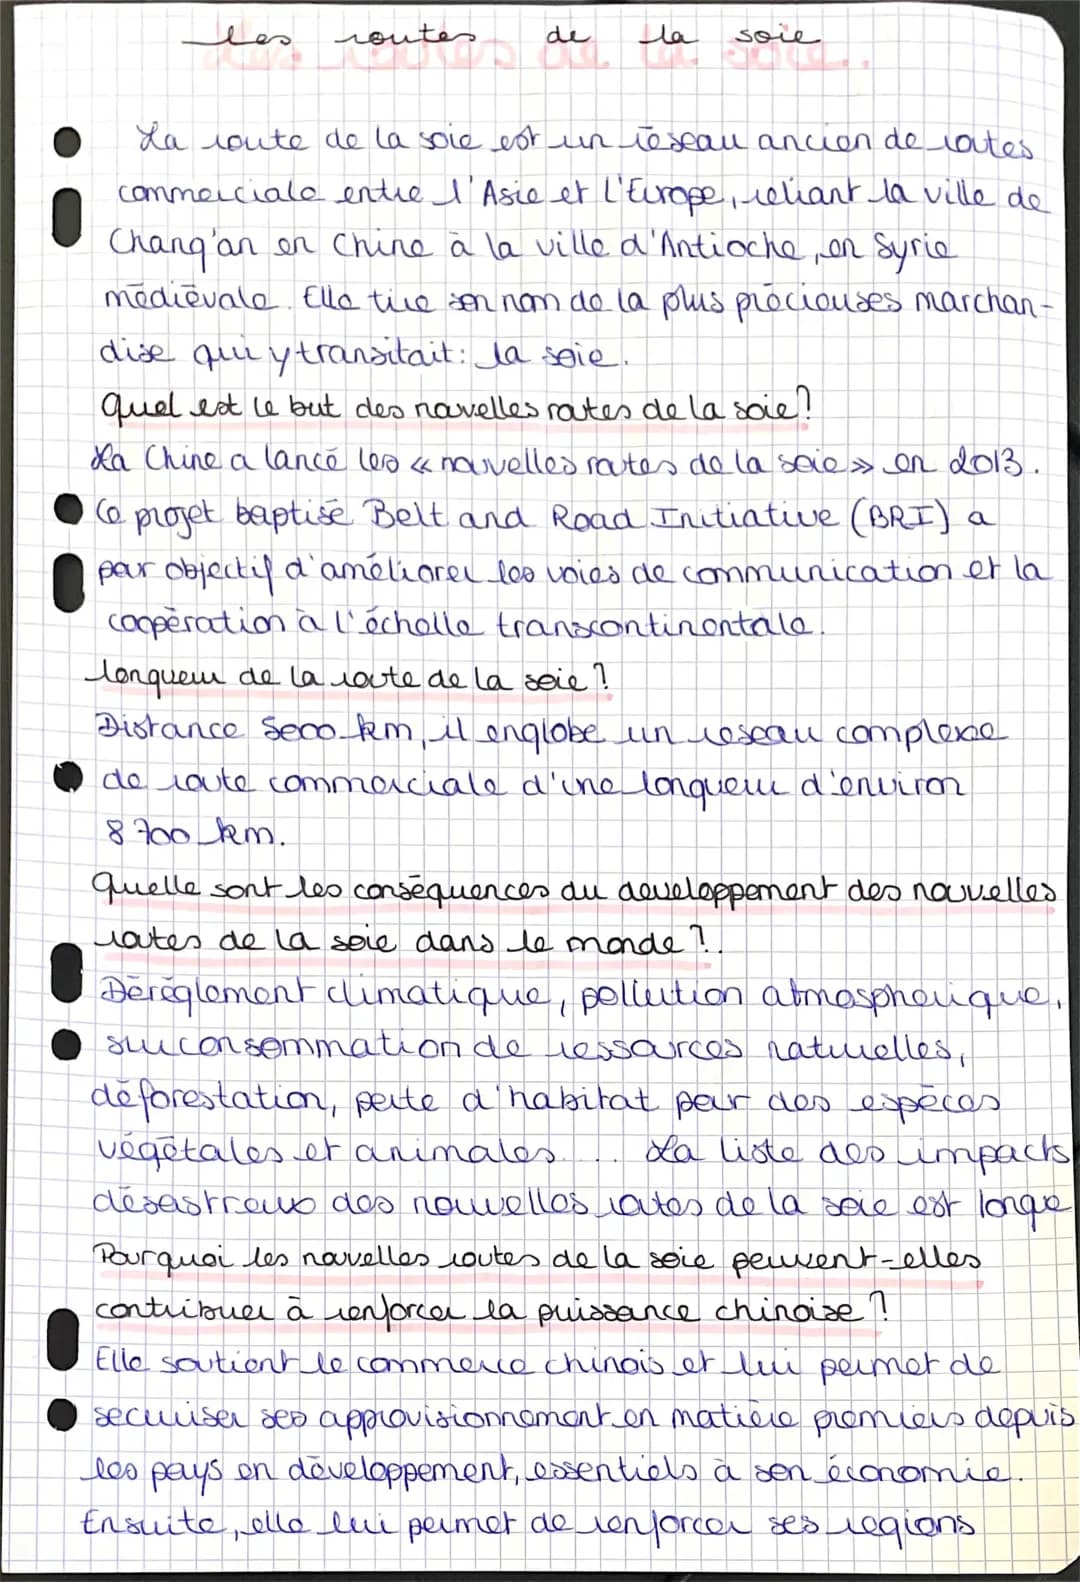 Les routes de la soie
La route de la soie est un réseau ancien de routes
commerciale entre l'Asie et l'Europe, reliant la ville de
Chang'an en Chine à la ville d'Antioche, en Syrie
médiévale. Elle tire son nom de la plus précieuses marchan-
dise qui y transitait : la soie.
Quel est le but des nouvelles routes de la soie ?
La Chine a lancé les « nouvelles routes de la soie » en 2013.
Ce projet baptisé Belt and Road Initiative (BRI) a
par objectif d'améliorer les voies de communication et la
coopération à l'échelle transcontinentale.
longueur de la route de la soie ?
Distance 5000 km, il englobe un reseau complexe
de route commerciale d'une longueur d'environ
8 700 km.
Quelle sont les conséquences du developpement des nouvelles
routes de la soie dans le monde ?.
Déréglement climatique, pollution atmospherique,
surconsommation de ressources naturelles,
déforestation, perte d'habitat par des espèces
végétales et animales... La liste des impacts
désastreux des nouvelles routes de la soie est longe
Pourquoi les nouvelles routes de la soie peuvent-elles
contribuer à renforcer la puissance chinoise ?
Elle soutient le commerce chinois et lui permet de
securiser ses approvisionnement en matière premiers depuis
les pays en développement, essentiels à son économie.
Ensuite, elle lui permet de renforcer ses regions